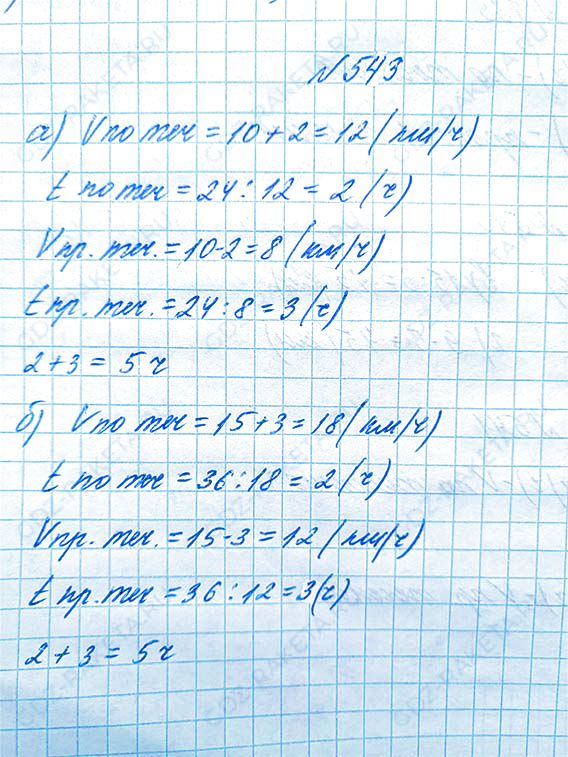 №543
а) Vпо теч = 10 + 2 = 12 (км/ч)
t по теч = 24 : 12 = 2 (ч)
Vпр. теч. = 10 - 2 = 8 (км/ч)
t пр. теч. = 24 : 8 = 3 (ч)
2 + 3 = 5 ч
б) Vпо теч = 15 + 3 = 18 (км/ч)
t по теч = 36 : 18 = 2 (ч)
Vпр. теч. = 15 - 3 = 12 (км/ч)
t пр. теч = 36 : 12 = 3 (ч)
2 + 3 = 5 ч